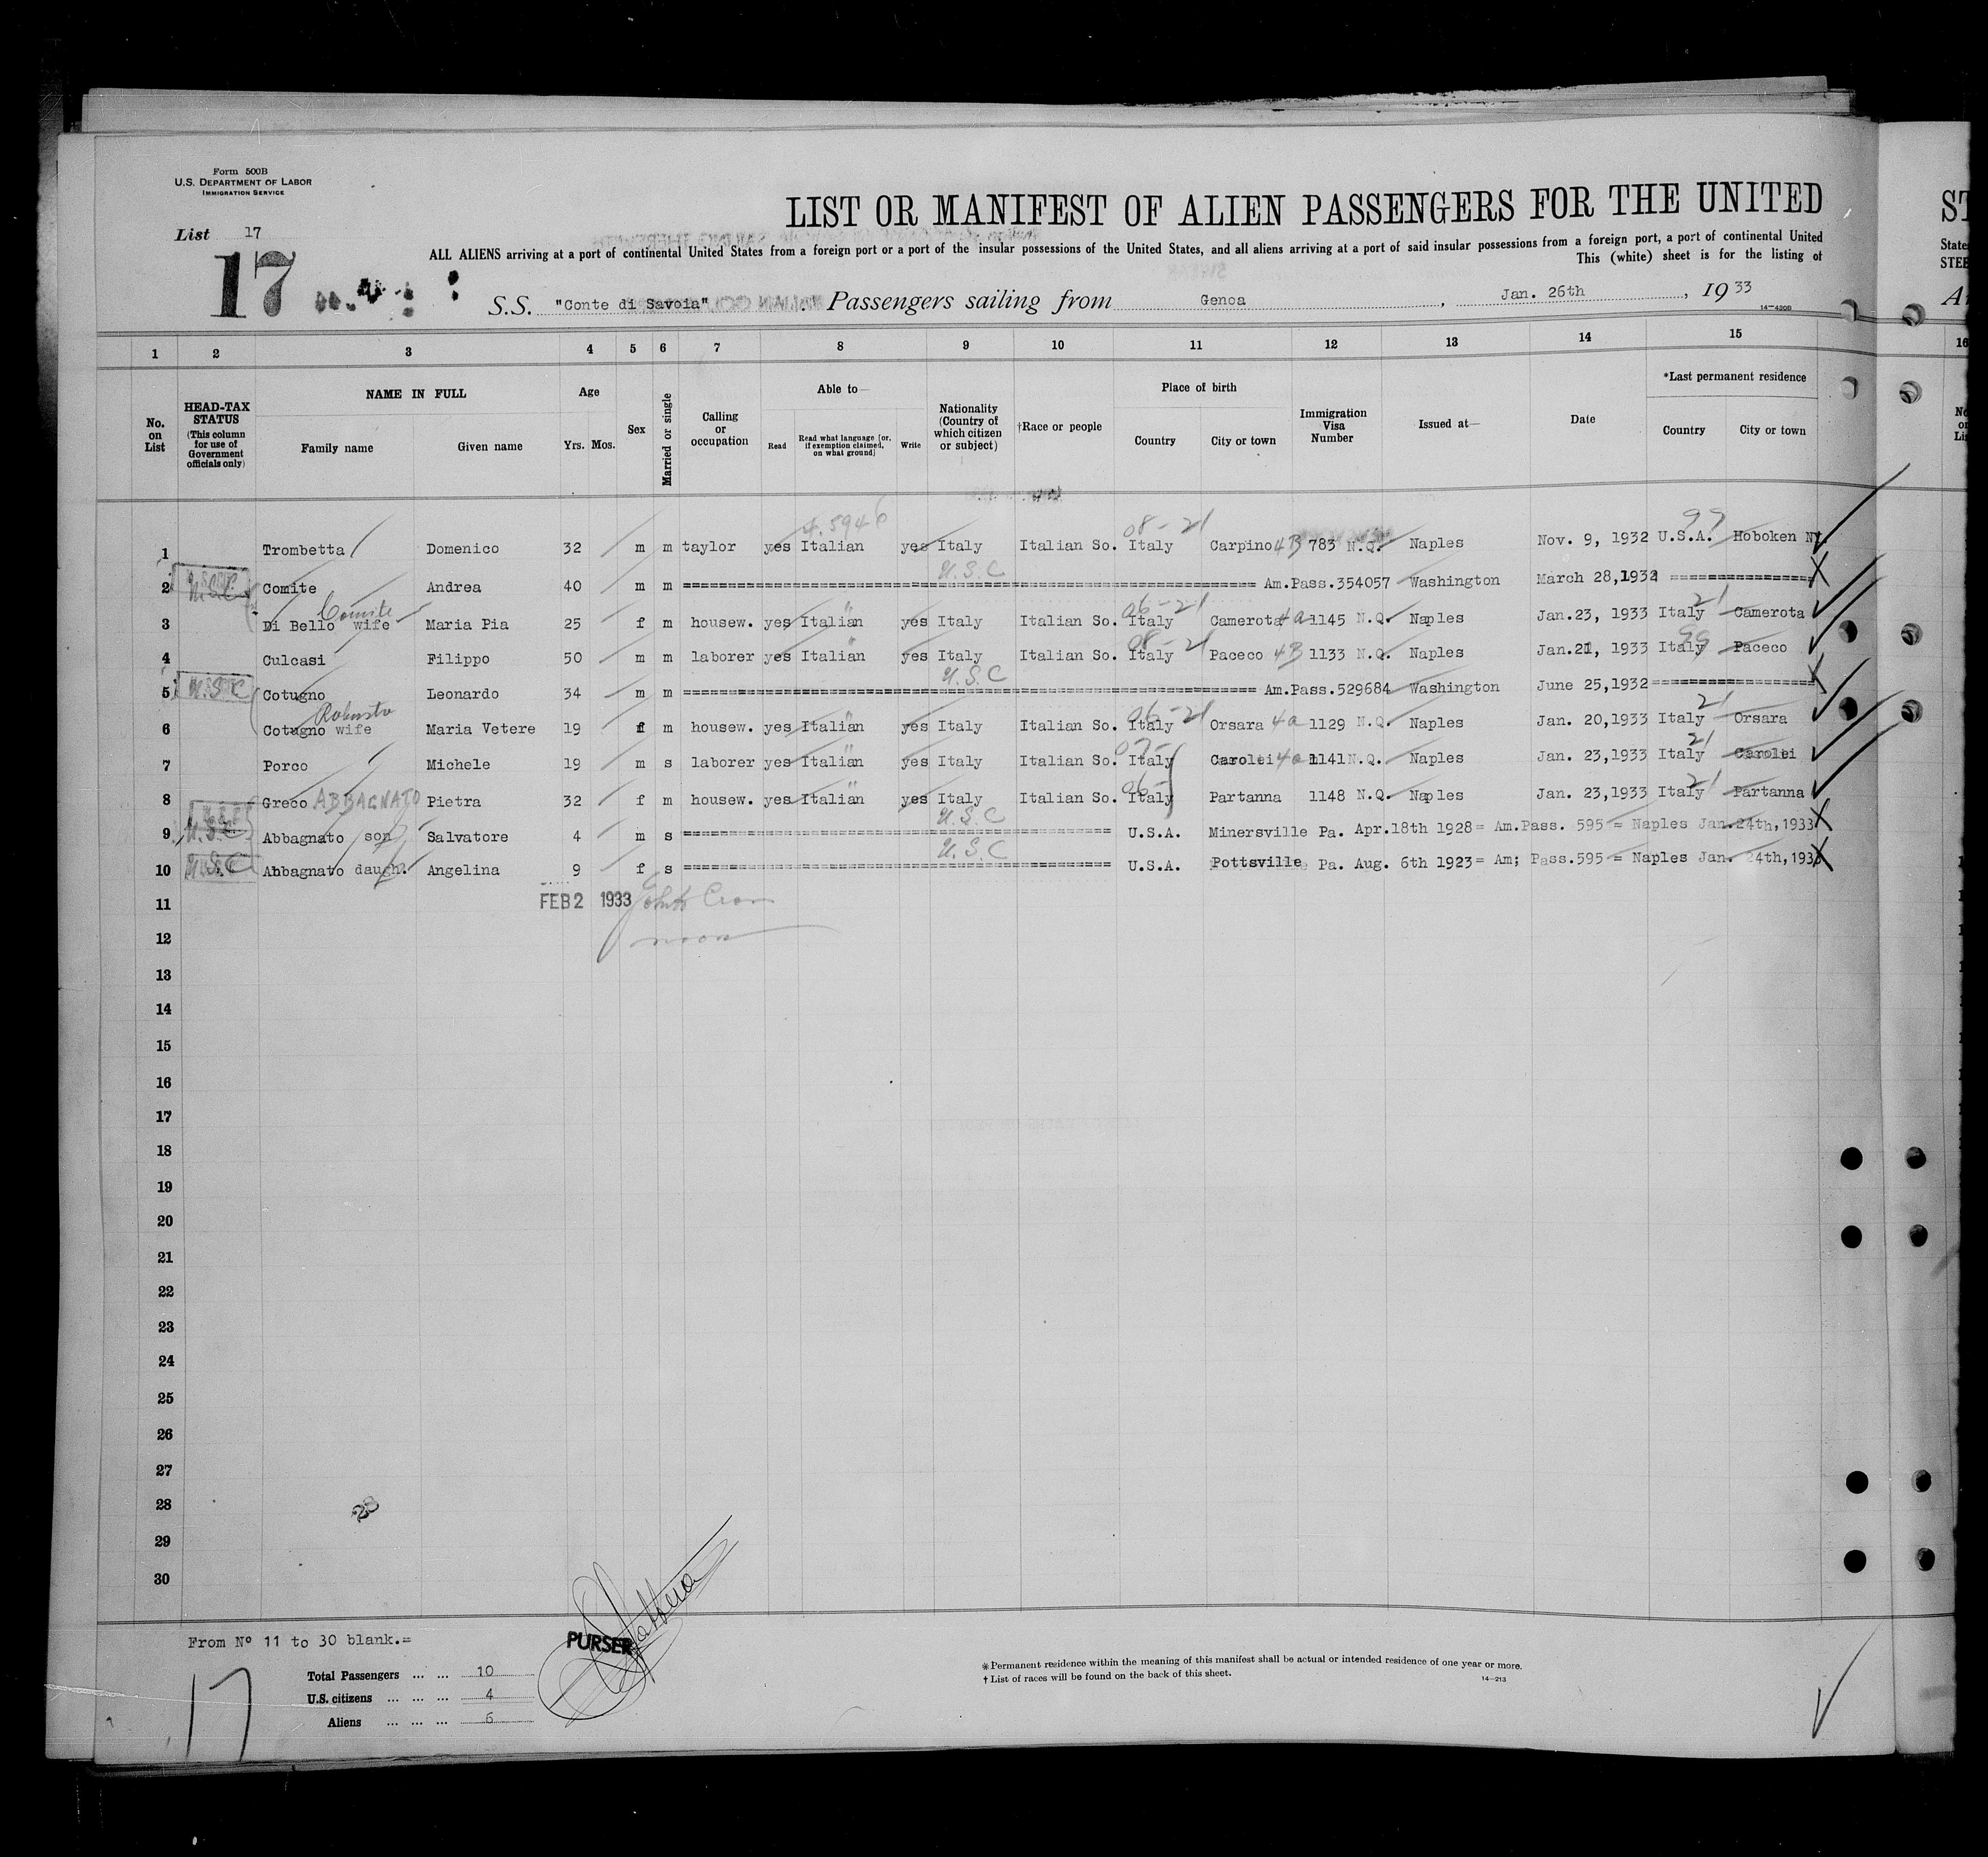 Form 500B
U.S. DEPARTMENT OF LABOR
IMMIGRATION SERVICE
List 17
17
LIST OR MANIFEST OF ALIEN PASSENGERS FOR THE UNITED
ST
ALL ALIENS arriving at a port of continental United States from a foreign port or a port of the insular possessions of the United States, and all aliens arriving at a port of said insular possessions from a foreign port, a port of continental United
This (white) sheet is for the listing of
S.S. "Conte di Savoia" Passengers sailing from Genoa, Jan. 26th, 1933
14-420B
1 2 3 4 5 6 7 8 9 10 11 12 13 14 15 16
No. on List
HEAD-TAX STATUS (This column for use of Government officials only)
NAME IN FULL
Family name Given name
Age
Yrs. Mos.
Sex
Married or single
Calling or occupation
Able to—
Read Read what language [or, if exemption claimed, on what ground] Write
Nationality (Country of which citizen or subject)
†Race or people
Place of birth
Country City or town
Immigration Visa Number
Issued at—
Date
*Last permanent residence
Country City or town
08-21 99
1 Trombetta Domenico 32 m m taylor yes Italian yes Italy Italian So. Italy Carpino 4B 783 N.Q. Naples Nov. 9, 1932 U.S.A. Hoboken NY.
U.S.C
2 U.S.C Comite Andrea 40 m m ======== Am.Pass.354057 Washington March 28,1932 ========
Comite 06-21 21
3 Di Bello wife Maria Pia 25 f m housew. yes Italian yes Italy Italian So. Italy Camerota 4a 1145 N.Q. Naples Jan.23, 1933 Italy Camerota
08-21 99
4 Culcasi Filippo 50 m m laborer yes Italian yes Italy Italian So. Italy Paceco 4B 1133 N.Q. Naples Jan.21, 1933 Italy Paceco
U.S.C
5 U.S.C Cotugno Leonardo 34 m m ======== Am.Pass.529684 Washington June 25,1932 ========
Robusto 06-21 21
6 Cotugno wife Maria Vetere 19 f m housew. yes Italian yes Italy Italian So. Italy Orsara 4a 1129 N.Q. Naples Jan. 20,1933 Italy Orsara
21
7 Porco Michele 19 m s laborer yes Italian yes Italy Italian So. Italy Carolei 4a 1141 N.Q. Naples Jan. 23,1933 Italy Carolei
06- 21
8 Greco ABBAGNATO Pietra 32 f m housew. yes Italian yes Italy Italian So. Italy Partanna 1148 N.Q. Naples Jan. 23,1933 Italy Partanna
U.S.C
9 U.S.C Abbagnato son Salvatore 4 m s ======== U.S.A. Minersville Pa. Apr.18th 1928= Am.Pass. 595 = Naples Jan.24th,1933
U.S.C
10 U.S.C Abbagnato daugh. Angelina 9 f s ======== U.S.A. Pottsville Pa. Aug. 6th 1923= Am; Pass.595 = Naples Jan. 24th,1933
11 FEB 2 1933
12 noon
13
14
15
16
17
18
19
20
21
22
23
24
25
26
27
28
29
30
From Nº 11 to 30 blank.=
PURSER
Total Passengers ... ... 10
U.S. citizens ... ... ... 4
Aliens ... ... ... 6
17
*Permanent residence within the meaning of this manifest shall be actual or intended residence of one year or more.
† List of races will be found on the back of this sheet.
14-213